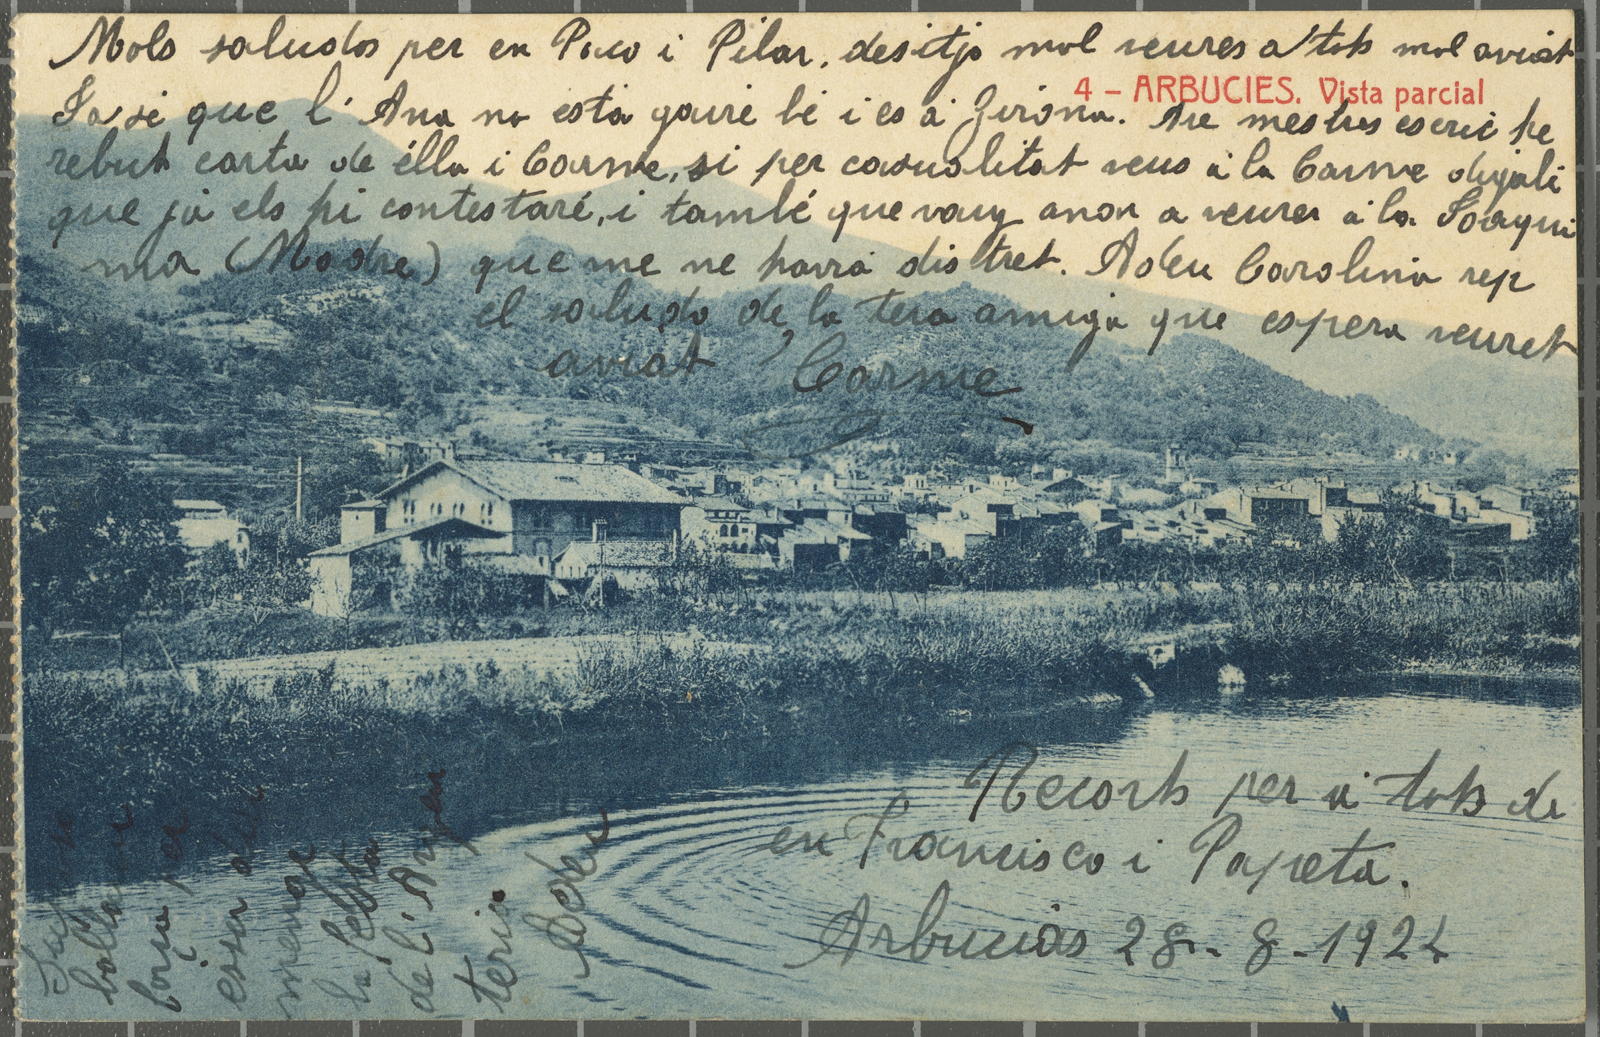 Mols saludos per en Paco i Pilar, desitjo mol veures a tots mol aviat
4 - ARBUCIES. Vista parcial
Ja sé que l' Ana no està gaire bé i es à Girona. Are mestres escric he
rebut carta de élla i Carme, si per casualitat veus à la Carme digali
que já els hi contestaré, i també que vaig anar a veurer à la Joaqui
ma (Madre) que me ne haurà distret. Adeu Carolina rep
el saludo de la teva amiga que espera veuret
aviat Carme
Recorts per à tots de
en Francisco i Papeta.
Arbucias 28 - 8 - 1924
per
essor
menge
la festa
de l'
Adeu